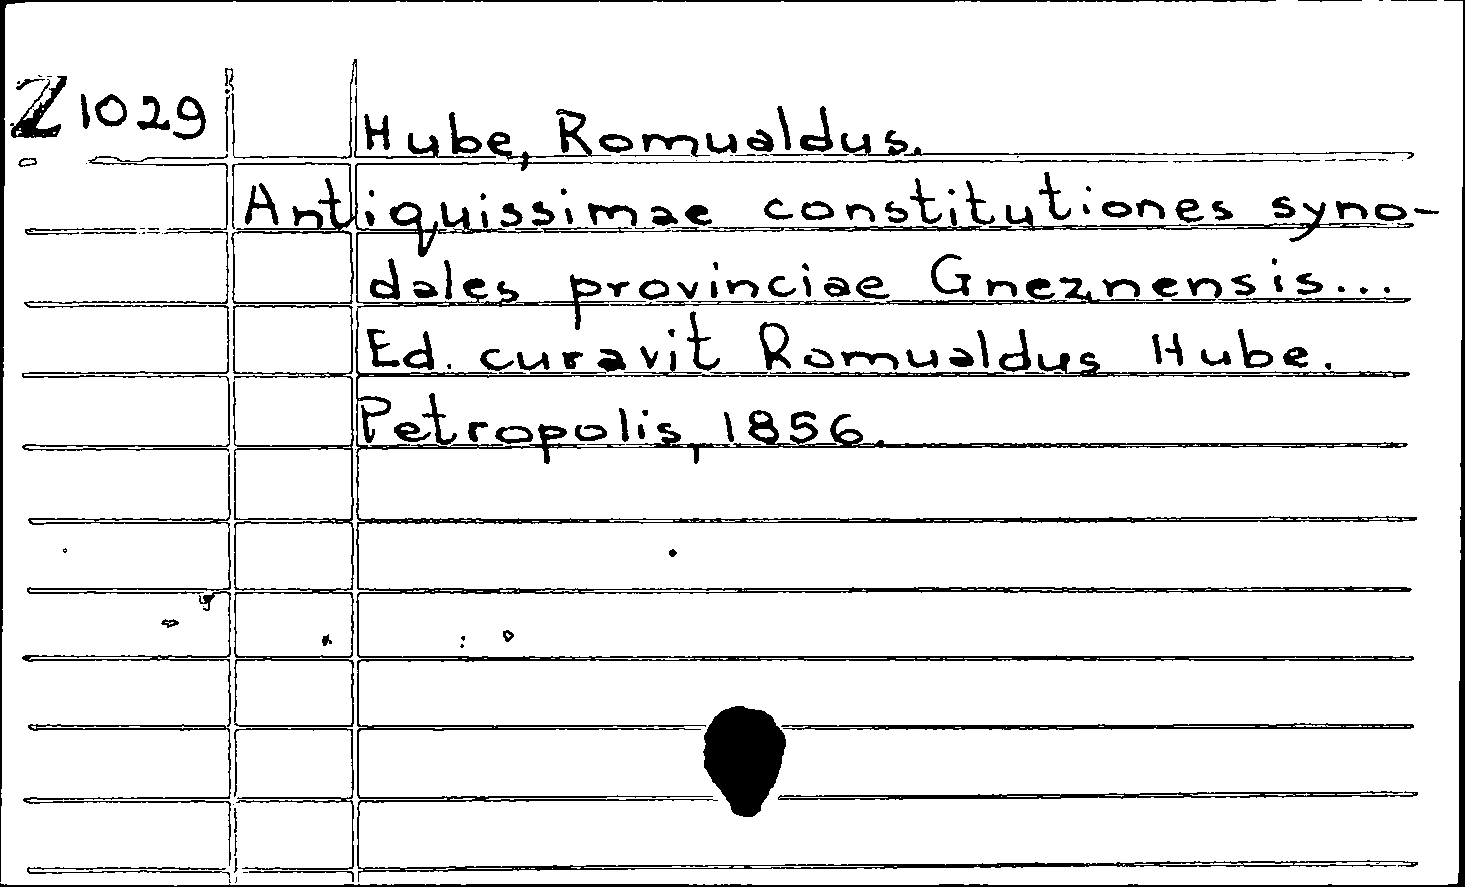 Z 1029
Hube, Romualdus.
Antiquissimae constitutiones syno-
dales provinciae Gneznensis...
Ed. curavit Romualdus Hube.
Petropolis, 1856.